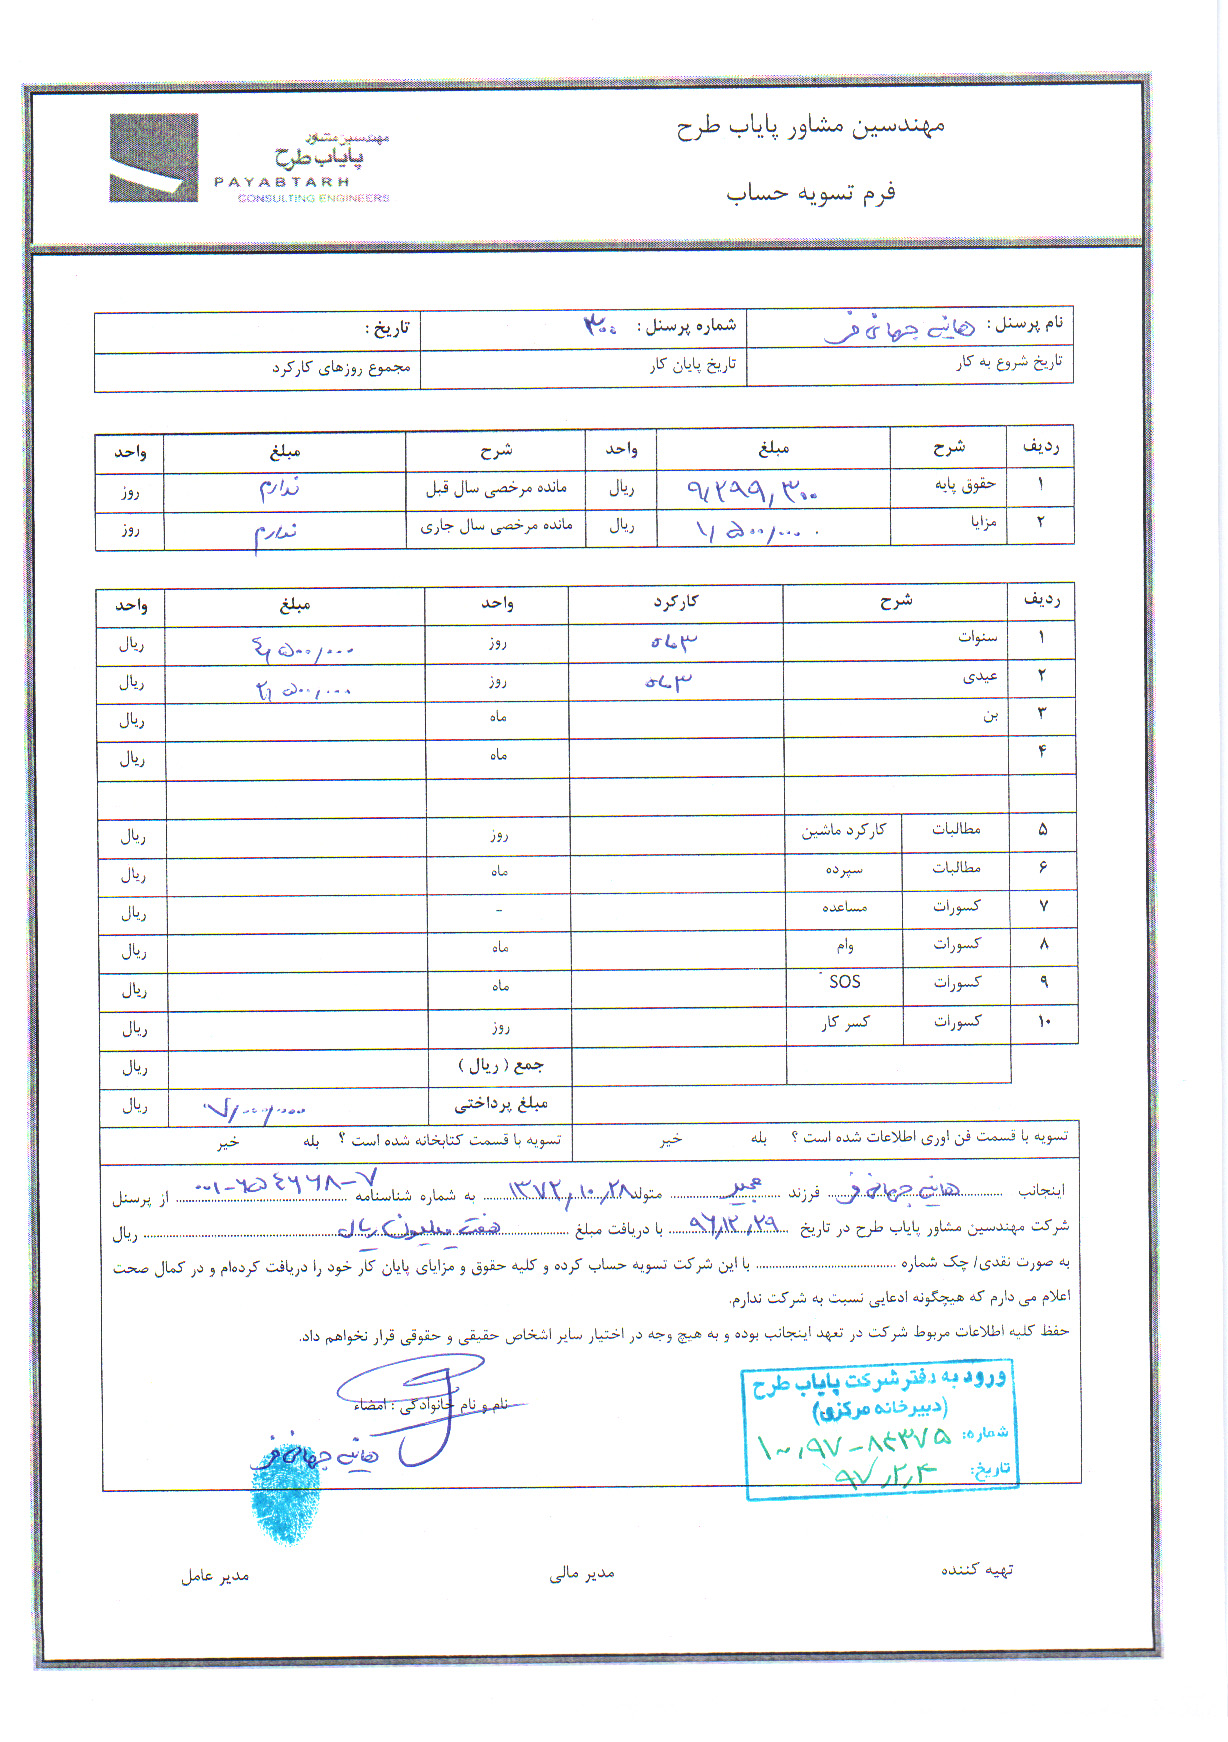 مهندسین مشاور پایاب طرح
فرم تسویه حساب
مهندسین مشاور
پایاب طرح
PAYABTARH
CONSULTING ENGINEERS
نام پرسنل : هانیه جهانی فر شماره پرسنل : ۳۰۰ تاریخ :
تاریخ شروع به کار تاریخ پایان کار مجموع روزهای کارکرد
ردیف شرح مبلغ واحد شرح مبلغ واحد
۱ حقوق پایه ۹,۲۹۹,۳۰۰ ریال مانده مرخصی سال قبل ندارم روز
۲ مزایا ۱,۵۰۰,۰۰۰ ریال مانده مرخصی سال جاری ندارم روز
ردیف شرح کارکرد واحد مبلغ واحد
۱ سنوات روز ۴,۵۰۰,۰۰۰ ریال
۲ عیدی روز ۲,۵۰۰,۰۰۰ ریال
۳ بن ماه ریال
۴ ماه ریال
۵ مطالبات کارکرد ماشین روز ریال
۶ مطالبات سپرده ماه ریال
۷ کسورات مساعده - ریال
۸ کسورات وام ماه ریال
۹ کسورات SOS ماه ریال
۱۰ کسورات کسر کار روز ریال
جمع ( ریال ) ریال
مبلغ پرداختی ۷,۰۰۰,۰۰۰ ریال
تسویه با قسمت فن اوری اطلاعات شده است ؟ بله خیر تسویه با قسمت کتابخانه شده است ؟ بله خیر
اینجانب هانیه جهانی فر فرزند مجید متولد ۱۳۷۲,۱۰,۲۸ به شماره شناسنامه ۰۰۱-۶۵۴۶۶۸-۷ از پرسنل
شرکت مهندسین مشاور پایاب طرح در تاریخ ۹۶,۱۲,۲۹ با دریافت مبلغ هفت میلیون ریال ریال
به صورت نقدی/ چک شماره با این شرکت تسویه حساب کرده و کلیه حقوق و مزایای پایان کار خود را دریافت کرده‌ام و در کمال صحت
اعلام می دارم که هیچگونه ادعایی نسبت به شرکت ندارم.
حفظ کلیه اطلاعات مربوط شرکت در تعهد اینجانب بوده و به هیچ وجه در اختیار سایر اشخاص حقیقی و حقوقی قرار نخواهم داد.
نام و نام خانوادگی : امضاء
هانیه جهانی فر
ورود به دفتر شرکت پایاب طرح
(دبیرخانه مرکزی)
شماره: ۱۰۰,۹۷-۸۴۳۷۵
تاریخ: ۹۷,۲,۴
تهیه کننده مدیر مالی مدیر عامل